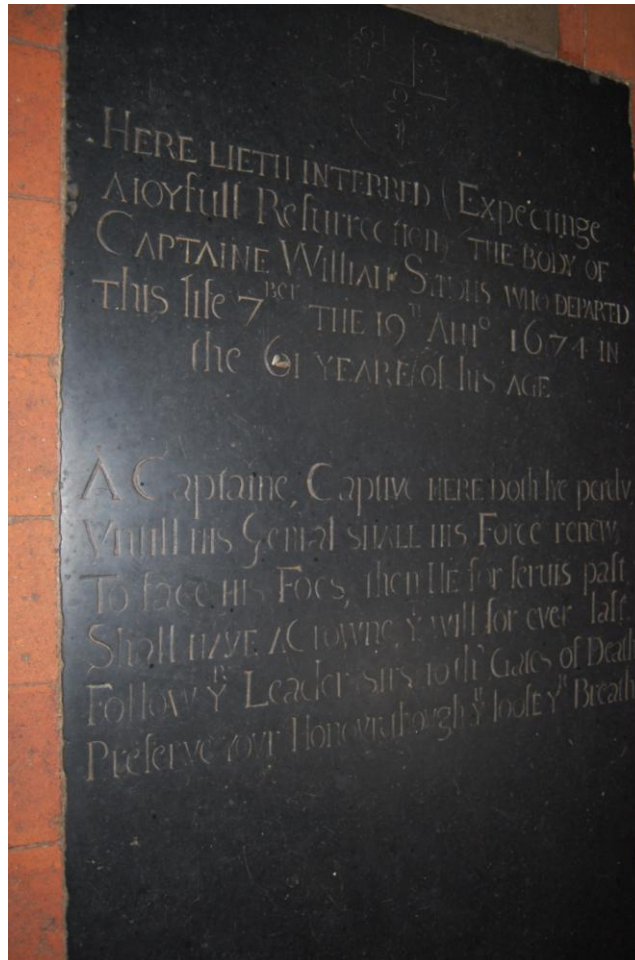 HERE LIETH INTERRED (Expectinge
A IOYfull Resurrection) THE BODY OF
CAPTAINE William WHO DEPARTED
this life 7ber THE 19th Anno 1674 IN
the 61 YEARE of his AGE
A Captaine, Captive HERE doth lye perdu
Vntill his Genral SHALL HIS Force renew
To face HIS Foes, then HE for servis past
Shall HAVE A Crowne yt will for ever last
Follow yr Leader sirs to th' Gates of Death
Preserve your Honour though yu loose yr Breath